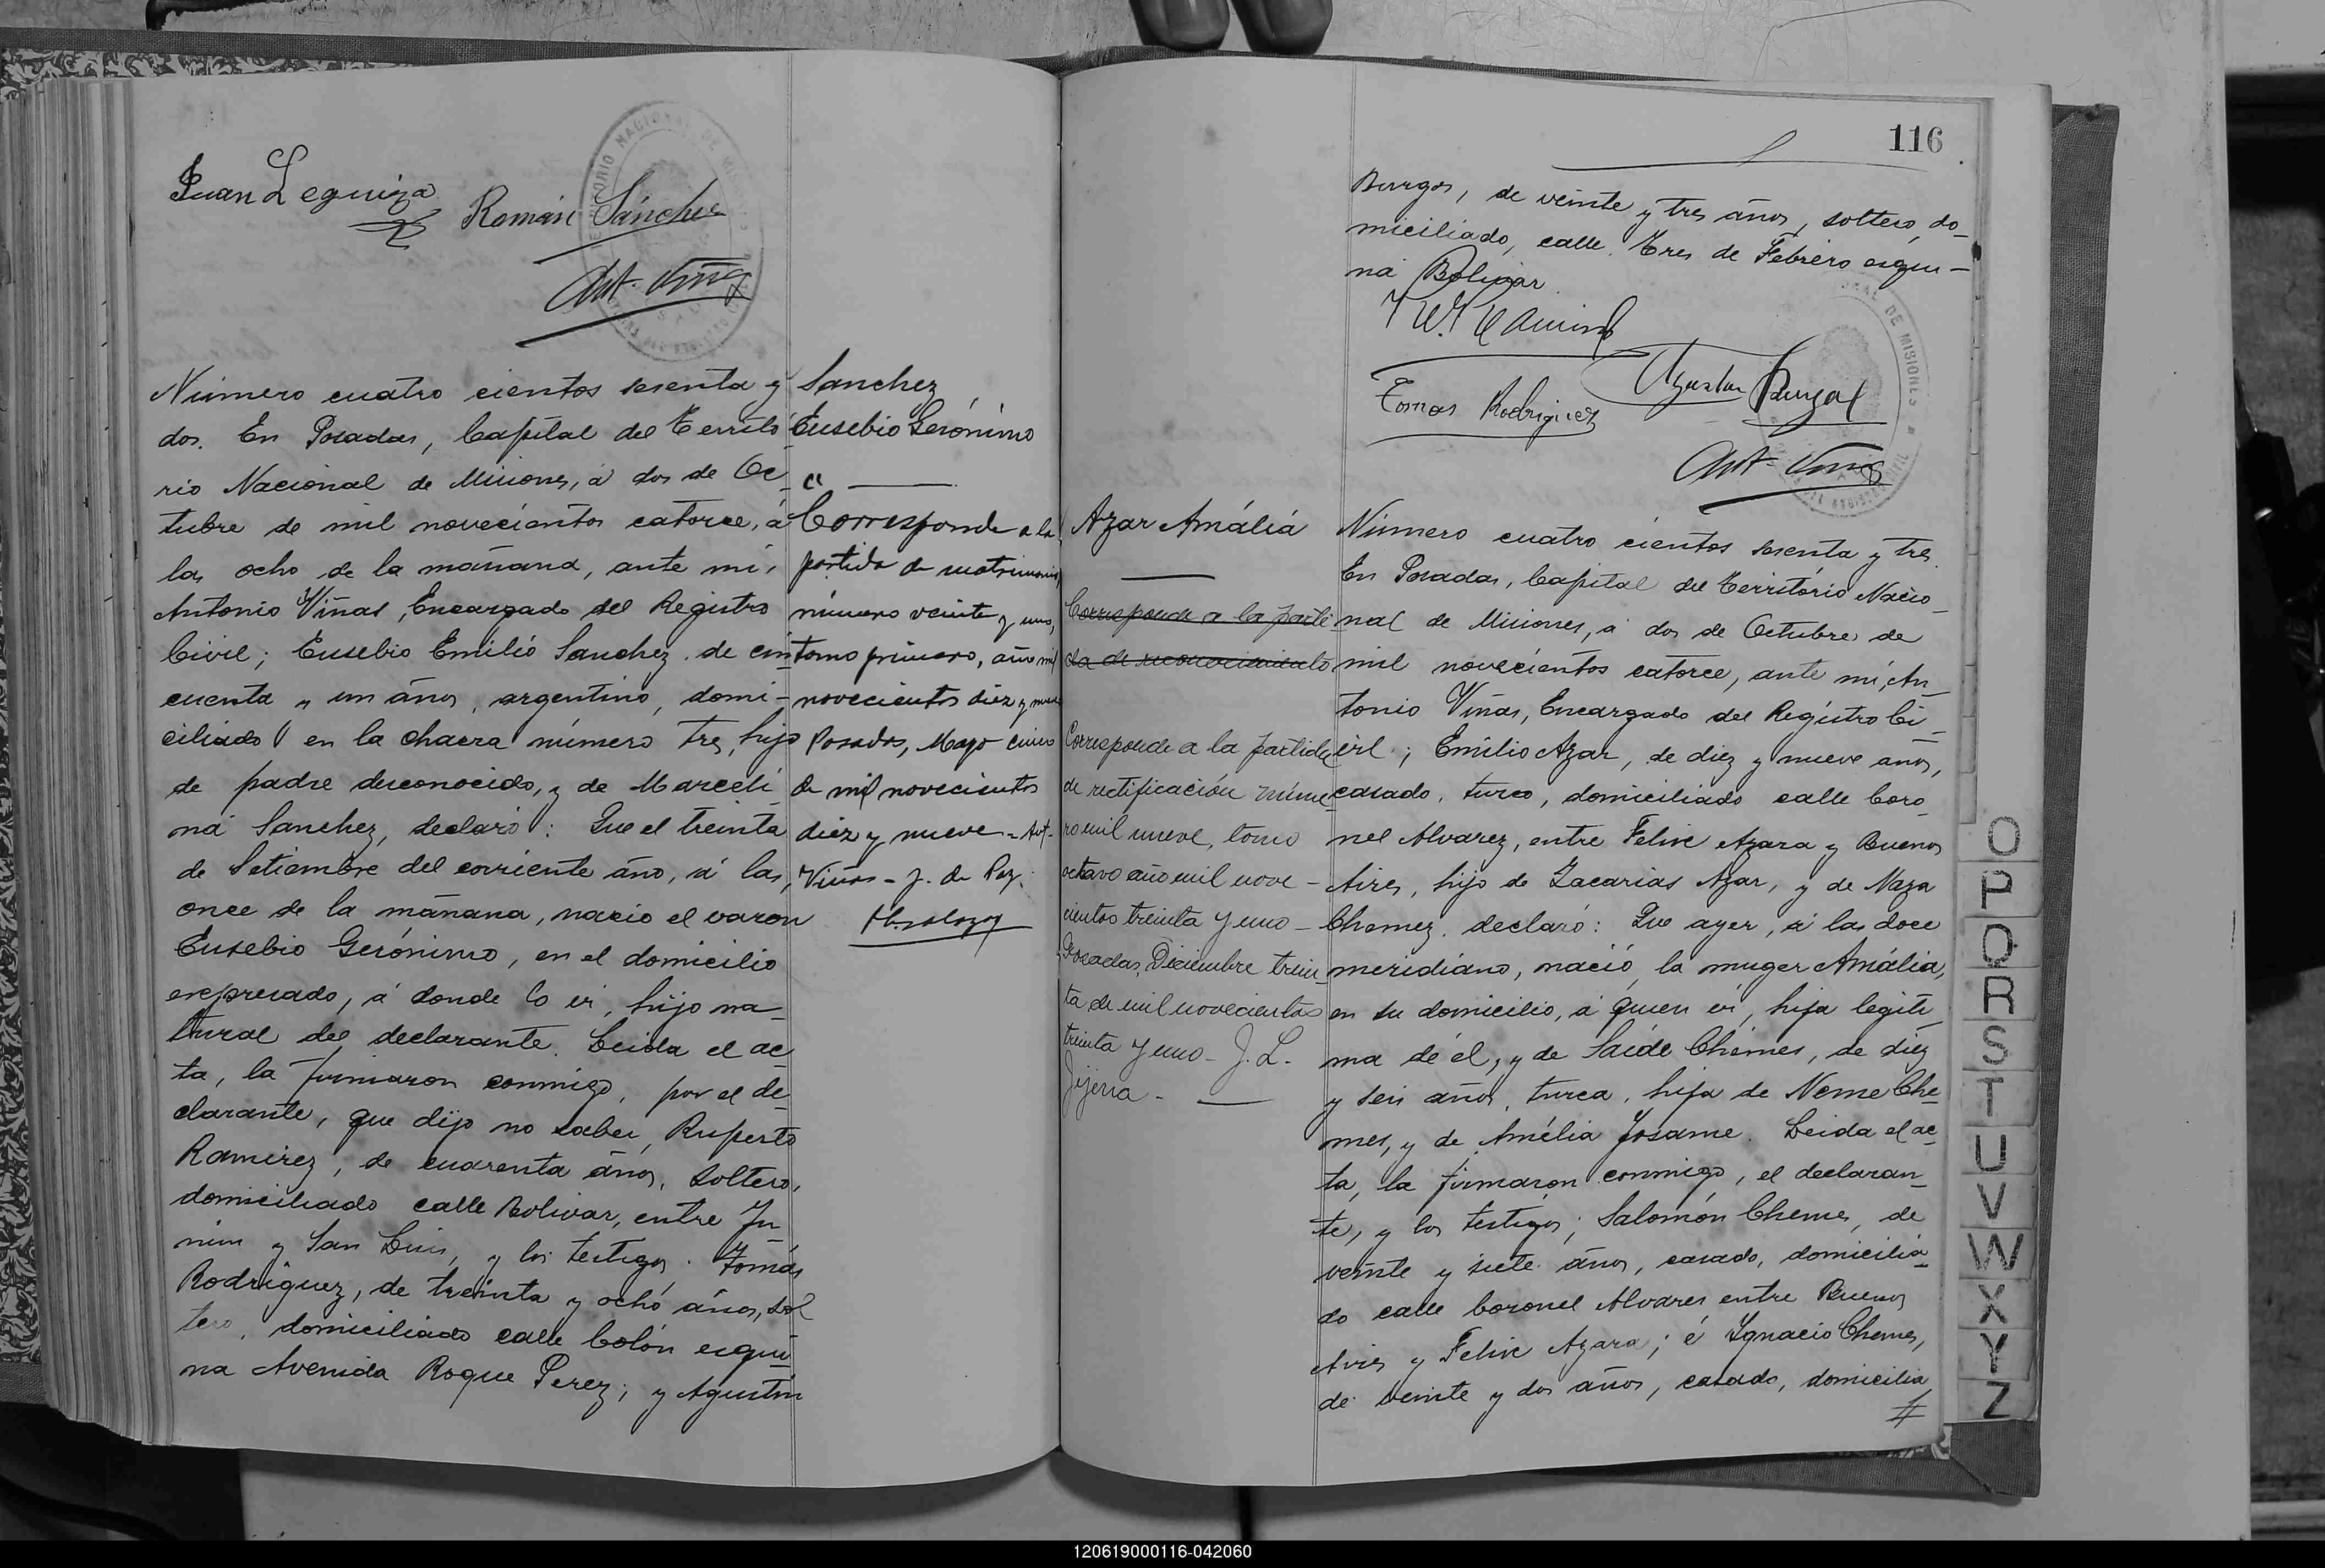 Juan Leguiza
Román Sánchez
Ant. Viñas
Número cuatro cientos sesenta y
dos. En Posadas, Capital del Territó
rio Nacional de Misiones, á dos de Oc
tubre de mil novecientos catorce, á
las ocho de la mañana, ante mi,
Antonio Viñas, Encargado del Registro
Civil; Eusebio Emilió Sanchez, de cin
cuenta y un años, argentino, domi-
ciliado en la chacra número tres, hijo
de padre desconocido, y de Marceli
na Sanchez, declaró: Que el treinta
de Setiembre del corriente año, á las
once de la mañana, nació el varon
Eusebio Gerónimo, en el domicilio
expresado, á donde lo vi, hijo na_
tural del declarante. Leida el ac
ta, la firmaron conmigo, por el de_
clarante, que dijo no saber, Ruperto
Ramirez, de cuarenta años, soltero,
domiciliado calle Bolivar, entre Ju_
nin y San Luis, y los testigos: Tomás
Rodriguez, de treinta y ochó años, sol
tero, domiciliado calle Colón esqui_
na Avenida Roque Perez; y Agustin
Sanchez,
Eusebio Gerónimo
"
Corresponde a la
partida de matrimonio
número veinte y uno,
tomo primero, año mil
novecientos diez y nueve
Posadas, Mayo cinco
de mil novecientos
diez y nueve - Ant-
Viñas - J. de Paz.
116
Burgos, de veinte y tres años, soltero, do_
miciliado, calle Tres de Febrero esqui-
na Bolivar
Tomas Rodriguez
Agustin Burgos
Ant. Viñas
Azar Amáliá
Corresponde a la parti
da de reconocimiento
Corresponde a la partida
de rectificación núme
ro mil nueve, tomo
octavo año mil nove-
cientos treinta y uno-
Posadas, Diciembre trein_
ta de mil novecientos
treinta y uno - J. L.
Jijena -
Número cuatro cientos sesenta y tres.
En Posadas, Capital del Território Nacio_
nal de Misiones, á dos de Octubre de
mil novecientos catorce, ante mi, An_
tonio Viñas, Encargado del Registro Ci_
vil; Emilio Azar, de diez y nueve años,
casado, turco, domiciliado calle Coro_
nel Alvarez, entre Felix Azara y Buenos
Aires, hijo de Zacarias Azar, y de Naza
Chemez, declaró: Que ayer, á las doce
meridiano, nació la muger Amália,
en su domicilio, á quien vi, hija legiti_
ma de él, y de Saide Chémes, de diez
y seis años, turca, hija de Neme Che_
mes, y de Amélia Josame. Leida el ac_
ta, la firmaron conmigo, el declaran_
te, y los testigos; Salomón Chemes, de
veinte y siete años, casado, domicilia_
do calle Coronel Alvares entre Buenos
Aires y Felix Azara; é Ygnacio Chemes,
de veinte y dos años, casado, domicilia
#
O
P
Q
R
S
T
U
V
W
X
Y
Z
120619000116-042060